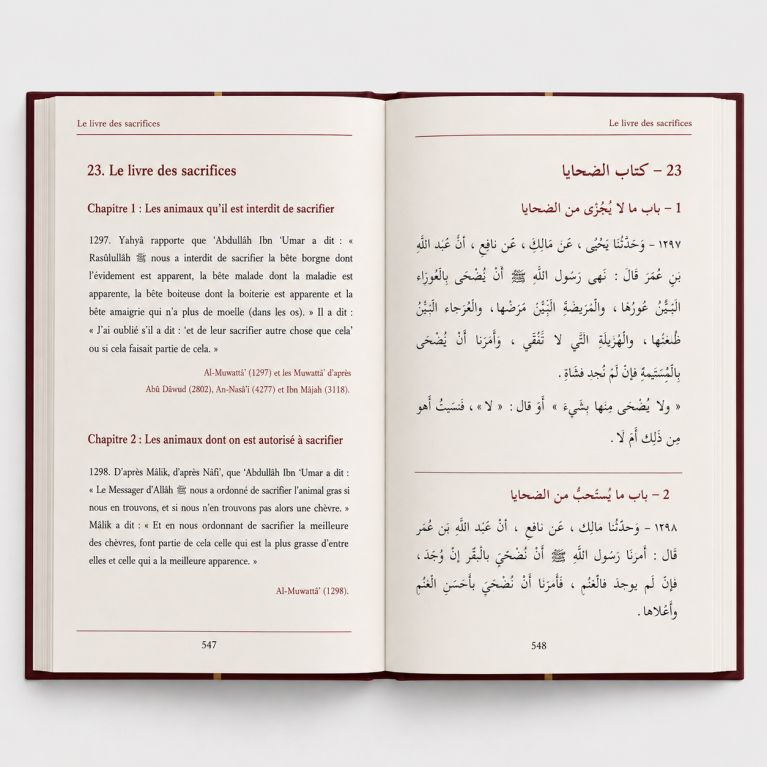 Le livre des sacrifices
23. Le livre des sacrifices
Chapitre 1 : Les animaux qu'il est interdit de sacrifier
1297. Yahyâ rapporte que 'Abdullâh Ibn 'Umar a dit : «
Rasûlullâh ﷺ nous a interdit de sacrifier la bête borgne dont
l'évidement est apparent, la bête malade dont la maladie est
apparente, la bête boiteuse dont la boiterie est apparente et la
bête amaigrie qui n'a plus de moelle (dans les os). » Il a dit :
« J'ai oublié s'il a dit : 'et de leur sacrifier autre chose que cela'
ou si cela faisait partie de cela. »
Al-Muwattâ' (1297) et les Muwattâ' d'après
Abû Dâwud (2802), An-Nasâ'i (4277) et Ibn Mâjah (3118).
Chapitre 2 : Les animaux dont on est autorisé à sacrifier
1298. D'après Mâlik, d'après Nâfi', que 'Abdullâh Ibn 'Umar a dit :
« Le Messager d'Allâh ﷺ nous a ordonné de sacrifier l'animal gras si
nous en trouvons, et si nous n'en trouvons pas alors une chèvre. »
Mâlik a dit : « Et en nous ordonnant de sacrifier la meilleure
des chèvres, font partie de cela celle qui est la plus grasse d'entre
elles et celle qui a la meilleure apparence. »
Al-Muwattâ' (1298).
547
Le livre des sacrifices
23 – كتاب الضحايا
1 – باب ما لا يُجْزَى من الضحايا
١٢٩٧ – وَحَدَّثَنَا يَحْيَى ، عَنْ مَالِكَ ، عَن نافِعٍ ، أنَّ عَبْد اللَّهِ
بنِ عُمَرَ قَالَ : نَهى رَسُول اللَّهِ ﷺ أَنْ يُضْحَى بِالْعُورَاء
الْبَيَّنُ عُورُهَا ، وَالْمَرِيضَةِ الْبَيَّنْ مَرَضْهَا، والْعُرَجاء الْبَيَّنُ
ظُلعَتُها ، والْهُزِيلَةِ الَّتَي لا تَنْقَي ، وَأَمَرَنا أَنْ يُضْحَى
بِالْمُسَتَيمةِ فإنْ لَمْ نُجدِ فشَاةِ .
« ولا يُضْحَى مِنَها بشَيء » أوَ قال : « لا » ، فَنَسَيتُ أهو
مِن ذَلِك أَمَ لَا .
2 – باب ما يُستَحبُّ من الضحايا
١٢٩٨ – وَحدّثنا مَالِك ، عَن نافع ، أنْ عَبْد اللَّهِ بَن عُمَر
قَال : أمرنَا رَسُول اللَّهِ ﷺ أَنْ نُضْحَيَ بالْبقَر إنْ وُجَدَ ،
فإنْ لَم يوجدَ فالْغَنُم ، فَأمَرَنا أَنْ نُضْحَيَ بأحَسَنِ الْغَنُم
وأَعْلاها .
548